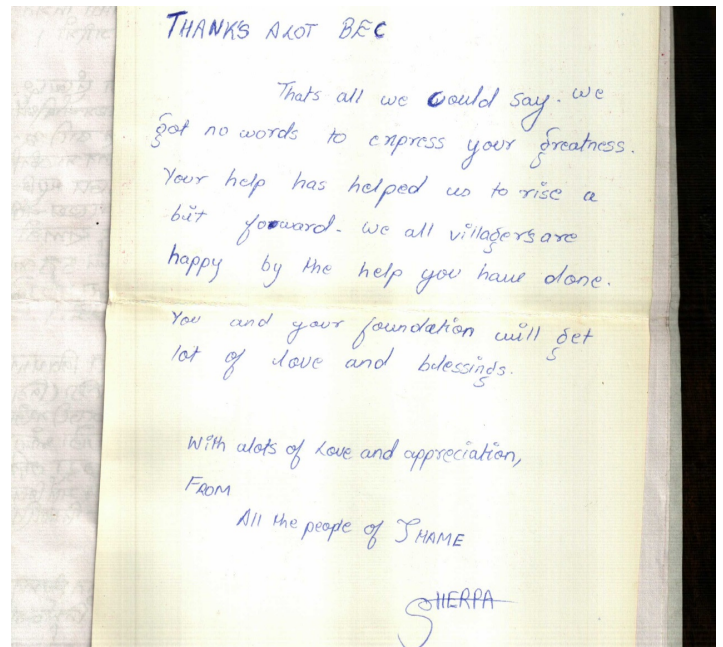 THANK'S ALOT BEC
Thats all we would say. we
got no words to express your greatness.
Your help has helped us to rise a
bit forward. we all villagers are
happy by the help you have done.
You and your foundation will get
lot of love and blessings.
With alots of Love and appreciation,
FROM
All the people of THAME
SHERPA